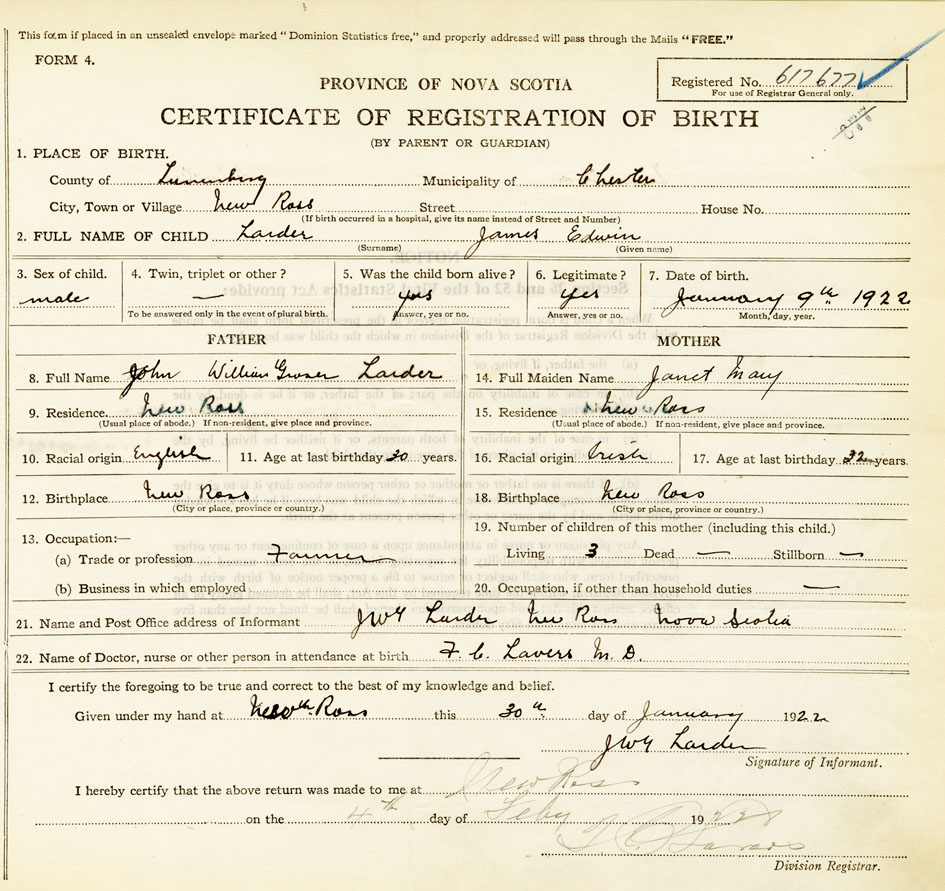 This form if placed in an unsealed envelope marked "Dominion Statistics free," and properly addressed will pass through the Mails "FREE."
FORM 4.
Registered No. 617677
For use of Registrar General only.
PROVINCE OF NOVA SCOTIA
CERTIFICATE OF REGISTRATION OF BIRTH
(BY PARENT OR GUARDIAN)
1. PLACE OF BIRTH.
County of Lunenburg Municipality of Chester
City, Town or Village New Ross Street House No.
(If birth occurred in a hospital, give its name instead of Street and Number)
2. FULL NAME OF CHILD Larder James Edwin
(Surname) (Given name)
3. Sex of child. 4. Twin, triplet or other? 5. Was the child born alive? 6. Legitimate? 7. Date of birth.
male — yes yes January 9th 1922
To be answered only in the event of plural birth. Answer, yes or no. Answer, yes or no. Month, day, year.
FATHER
8. Full Name John William Grover Larder
9. Residence New Ross
(Usual place of abode.) If non-resident, give place and province.
10. Racial origin English 11. Age at last birthday 30 years.
12. Birthplace New Ross
(City or place, province or country.)
13. Occupation:—
(a) Trade or profession Farmer
(b) Business in which employed
MOTHER
14. Full Maiden Name Janet Mary
15. Residence New Ross
(Usual place of abode.) If non-resident, give place and province.
16. Racial origin Irish 17. Age at last birthday 32 years.
18. Birthplace New Ross
(City or place, province or country.)
19. Number of children of this mother (including this child.)
Living 3 Dead — Stillborn —
20. Occupation, if other than household duties —
21. Name and Post Office address of Informant JWG Larder New Ross Nova Scotia
22. Name of Doctor, nurse or other person in attendance at birth F. C. Lavers M. D.
I certify the foregoing to be true and correct to the best of my knowledge and belief.
Given under my hand at New Ross this 30th day of January 1922
JWG Larder
Signature of Informant.
I hereby certify that the above return was made to me at New Ross
on the 4th day of Feby 1922
Division Registrar.